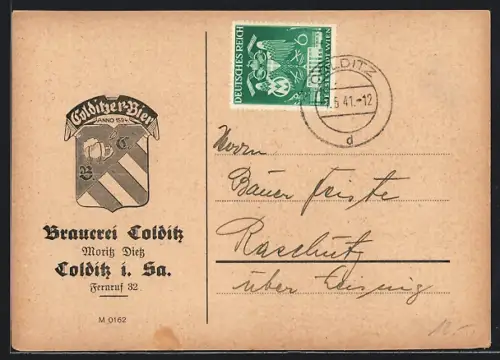 Colditzer-Bier
ANNO 1594
B. C.
Brauerei Colditz
Moritz Dietz
Colditz i. Sa.
Fernruf 32
M 0162
DEUTSCHES REICH
6
COLDITZ
5 41.-12
d
Herrn
Bauer Feiste
Raschütz
über
12.-